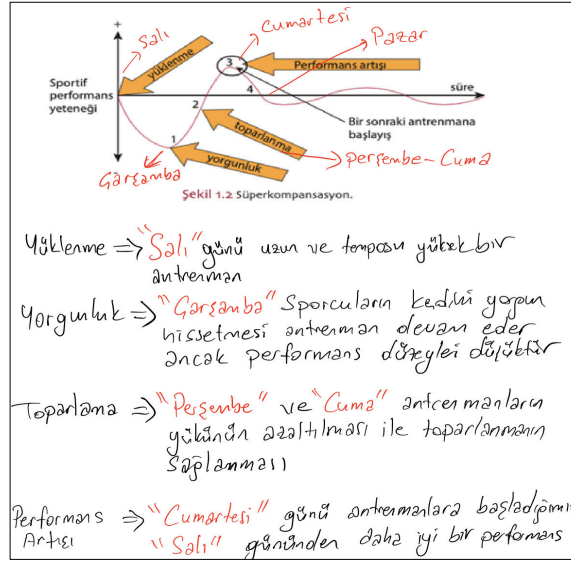 +
Salı
Cumartesi
Pazar
yüklenme
3
Performans artışı
Sportif
performans
yeteneği
4
süre
2
Bir sonraki antrenmana
başlayış
toparlanma
1
yorgunluk
Perşembe - Cuma
Çarşamba
Şekil 1.2 Süperkompansasyon.
Yüklenme => "Salı" günü uzun ve temposu yüksek bir
antrenman
Yorgunluk => "Çarşamba" Sporcuların kedini yorgun
hissetmesi antrenman devam eder
ancak performans düzeylei düşüktür
Toparlama => "Perşembe" ve "Cuma" antrenmanların
yükünün azaltılması ile toparlanmanın
sağlanması
Performans => "Cumartesi" günü antrenmanlara başladığımız
Artışı "Salı" gününden daha iyi bir performans